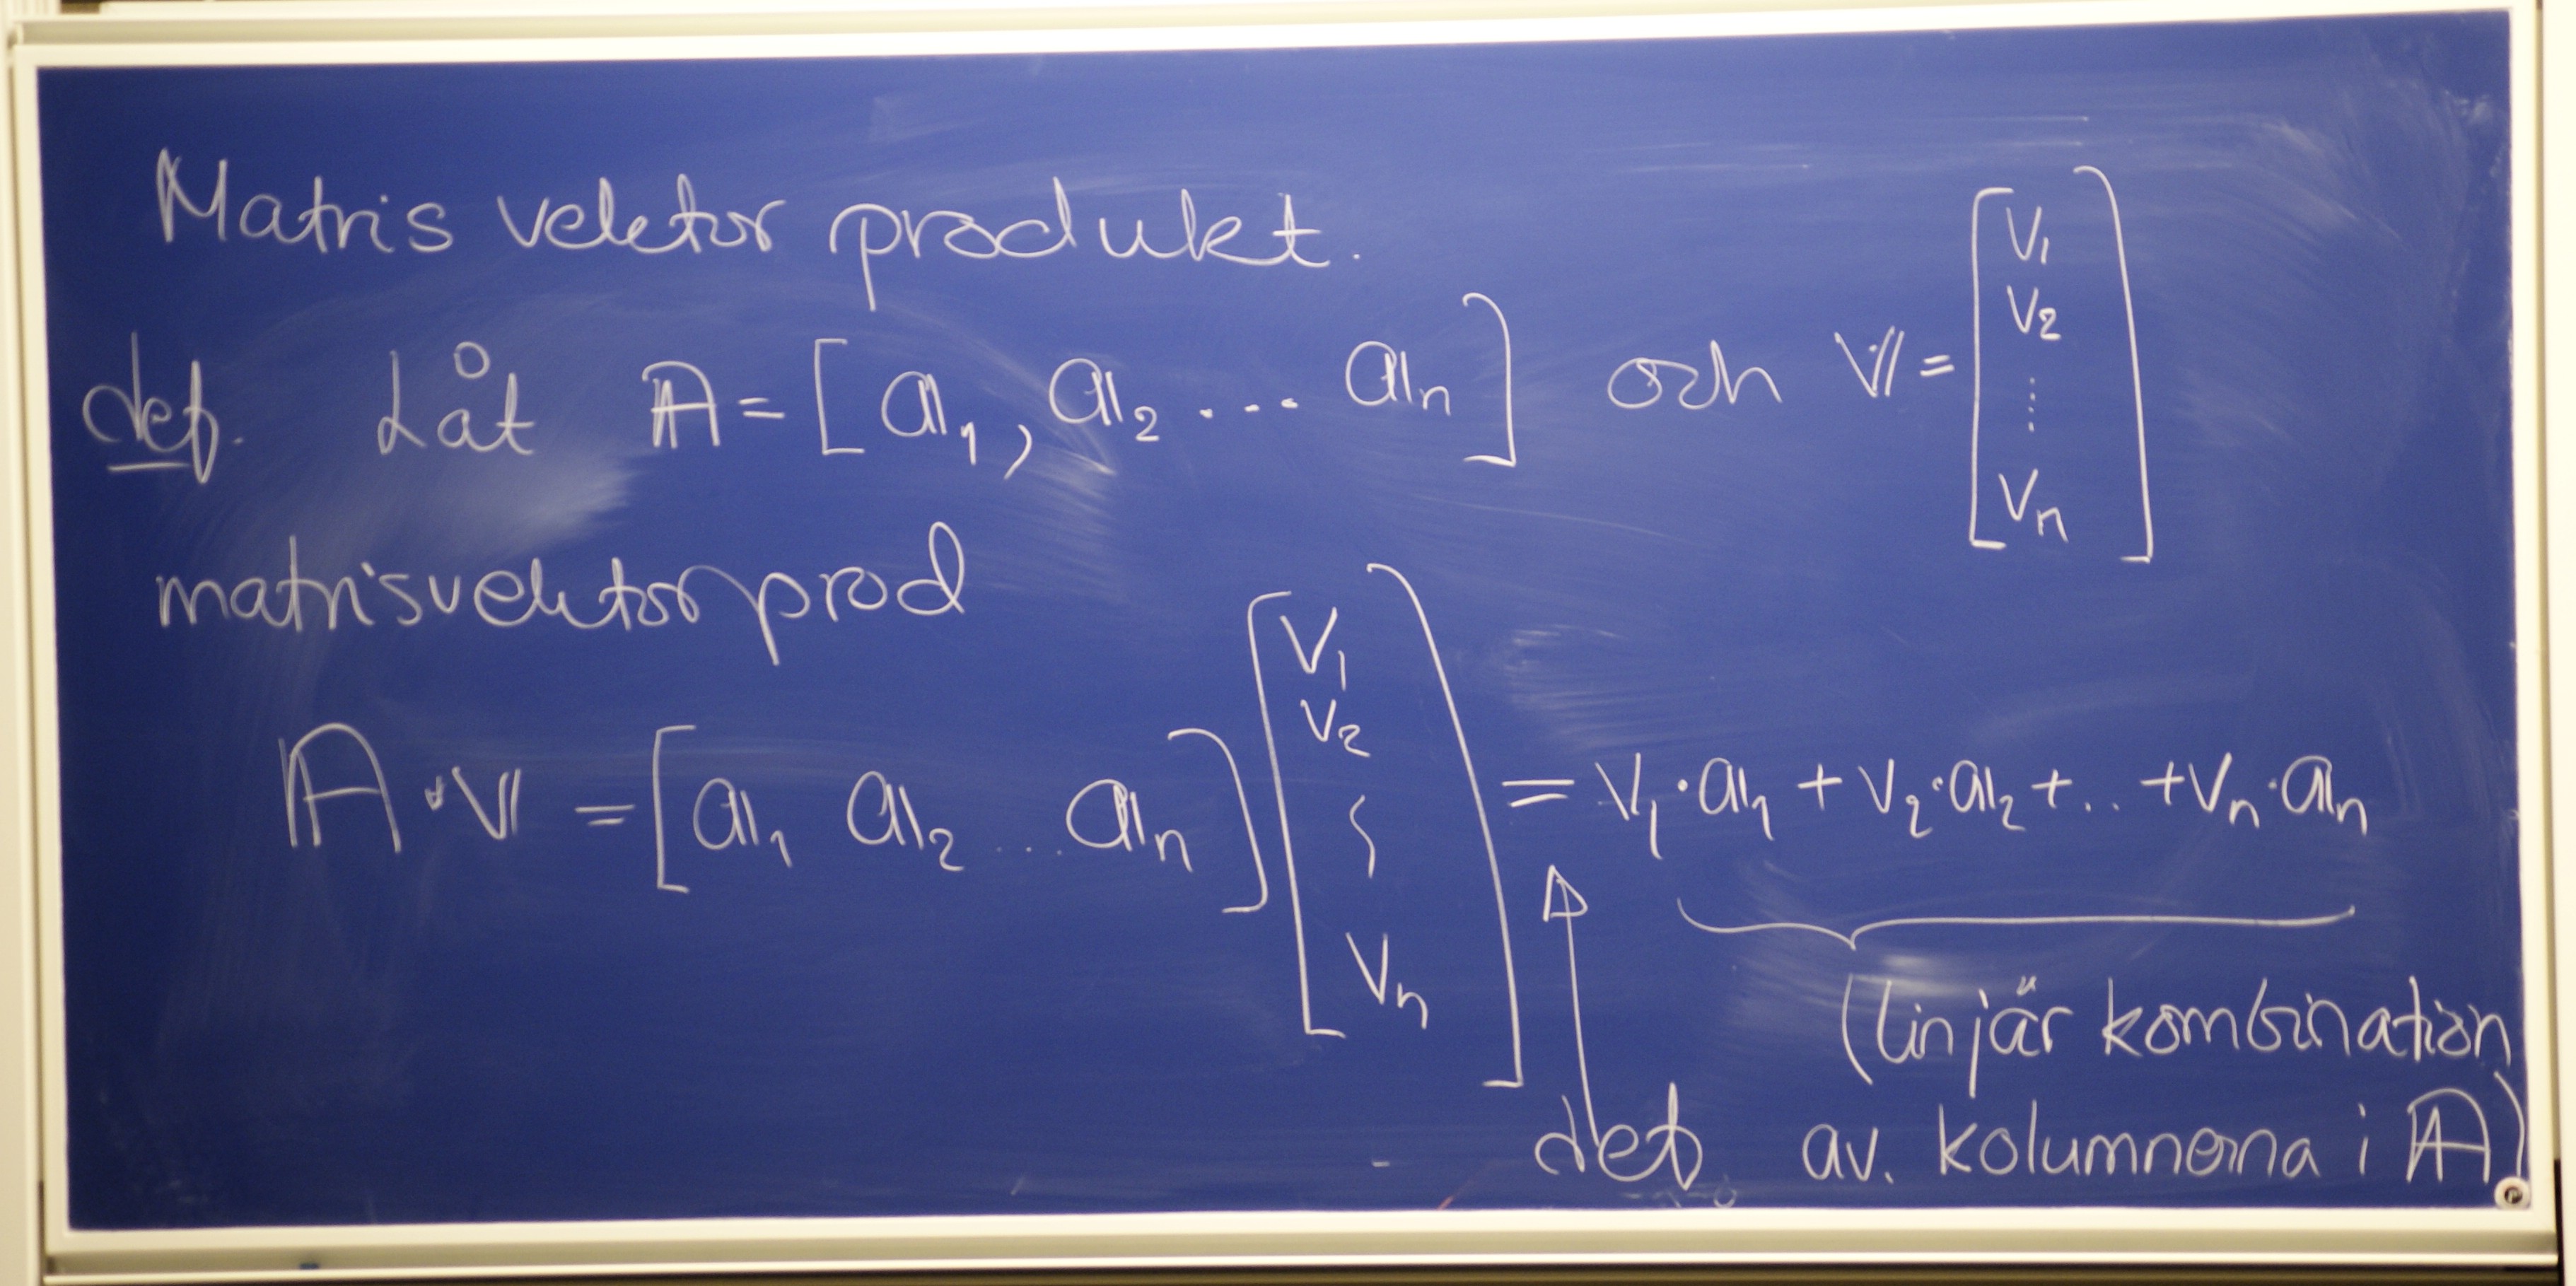 Matris vektor produkt.
def. Låt 𝔸 = [𝕒₁, 𝕒₂ ... 𝕒ₙ] och 𝕍 = [v₁ v₂ ⋮ vₙ]
matrisvektorprod
𝔸 · 𝕍 = [𝕒₁ 𝕒₂ ... 𝕒ₙ] [v₁ v₂ ⋮ vₙ] = v₁·𝕒₁ + v₂·𝕒₂ + .. + vₙ·𝕒ₙ
(linjär kombination
def av. kolumnerna i 𝔸)